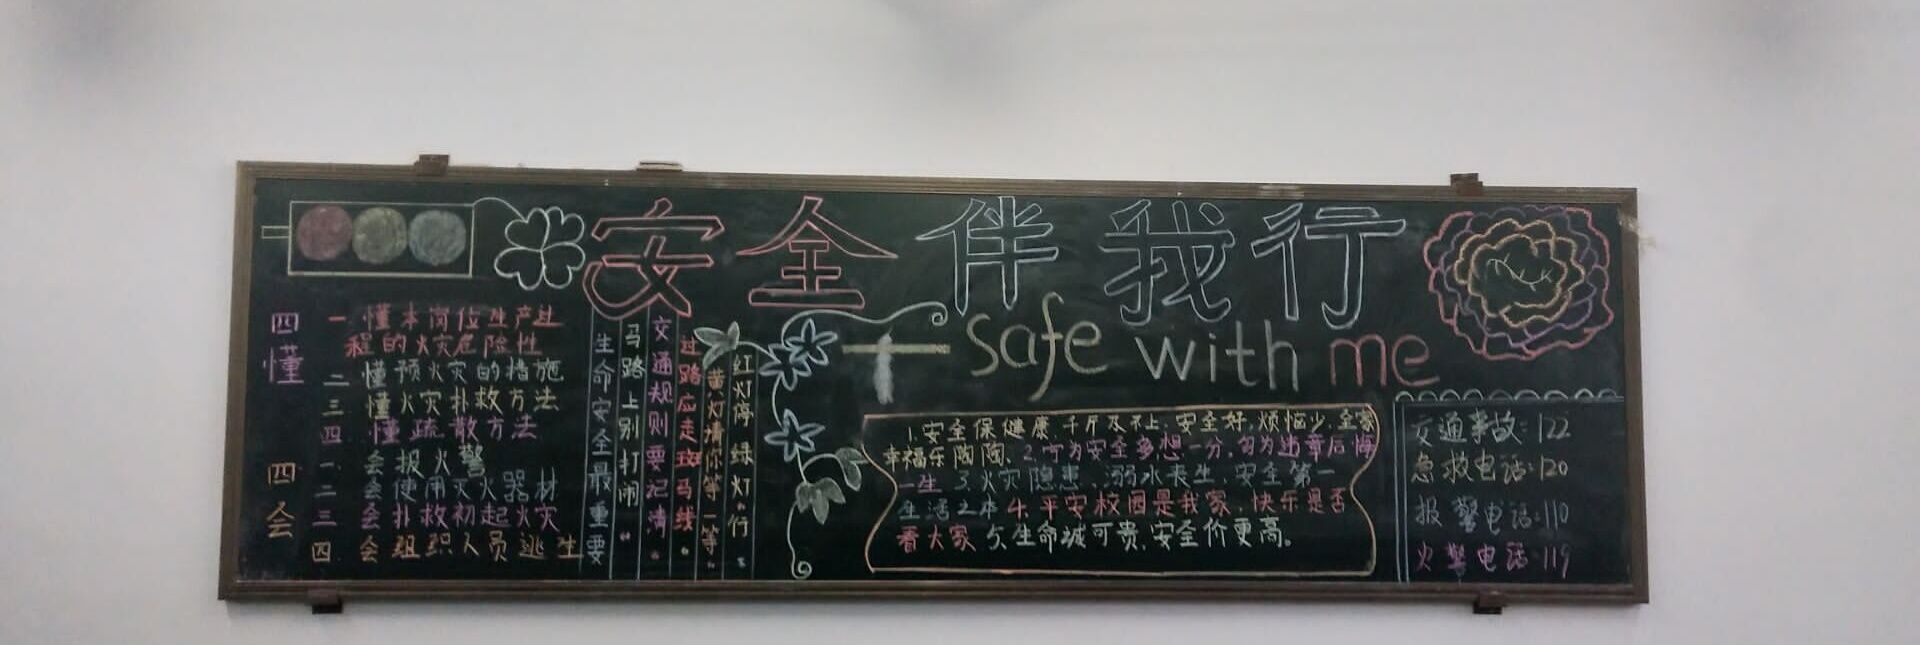 安全伴我行
safe with me
四懂
一 懂本岗位生产过
程的火灾危险性
二 懂预火灾的措施
三 懂火灾扑救方法
四 懂疏散方法
四会
一. 会报火警
二 会使用灭火器材
三 会扑救初起火灾
四. 会组织人员逃生
红灯停绿灯行。
黄灯请你等一等。
过路应走斑马线。
交通规则要记清。
马路上别打闹
生命安全最重要
1.安全保健康,千斤及不上.安全好,烦恼少.全家
幸福乐陶陶.2.宁为安全多想一分,勿为违章后悔
一生 3.火灾隐患 溺水丧生,安全第一
生活之本 4.平安校园是我家,快乐是否
看大家 5.生命诚可贵,安全价更高。
交通事故:122
急救电话:120
报警电话:110
火警电话:119